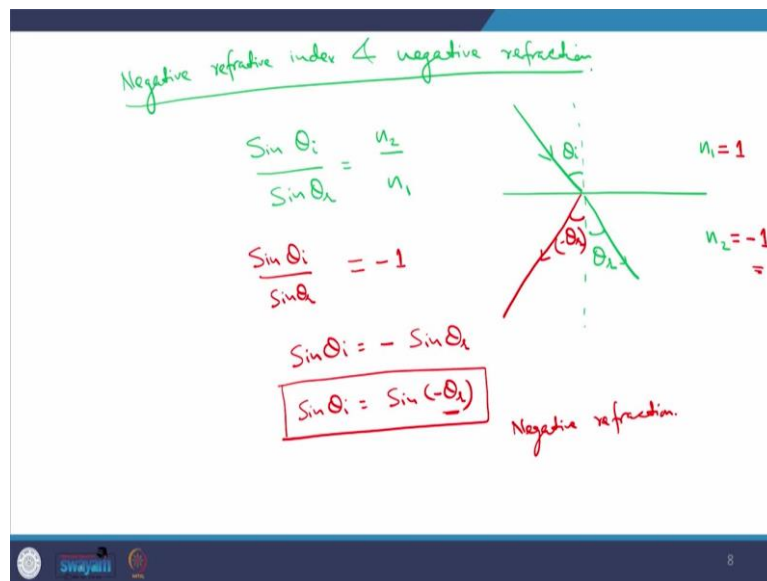 Negative refrative index & negative refraction.
Sin θi / Sin θr = n2 / n1
θi
n1 = 1
(-θr)
θr
n2 = -1
=
Sin θi / Sin θr = -1
Sin θi = - Sin θr
Sin θi = Sin (-θr)
Negative refraction.
swayam
8